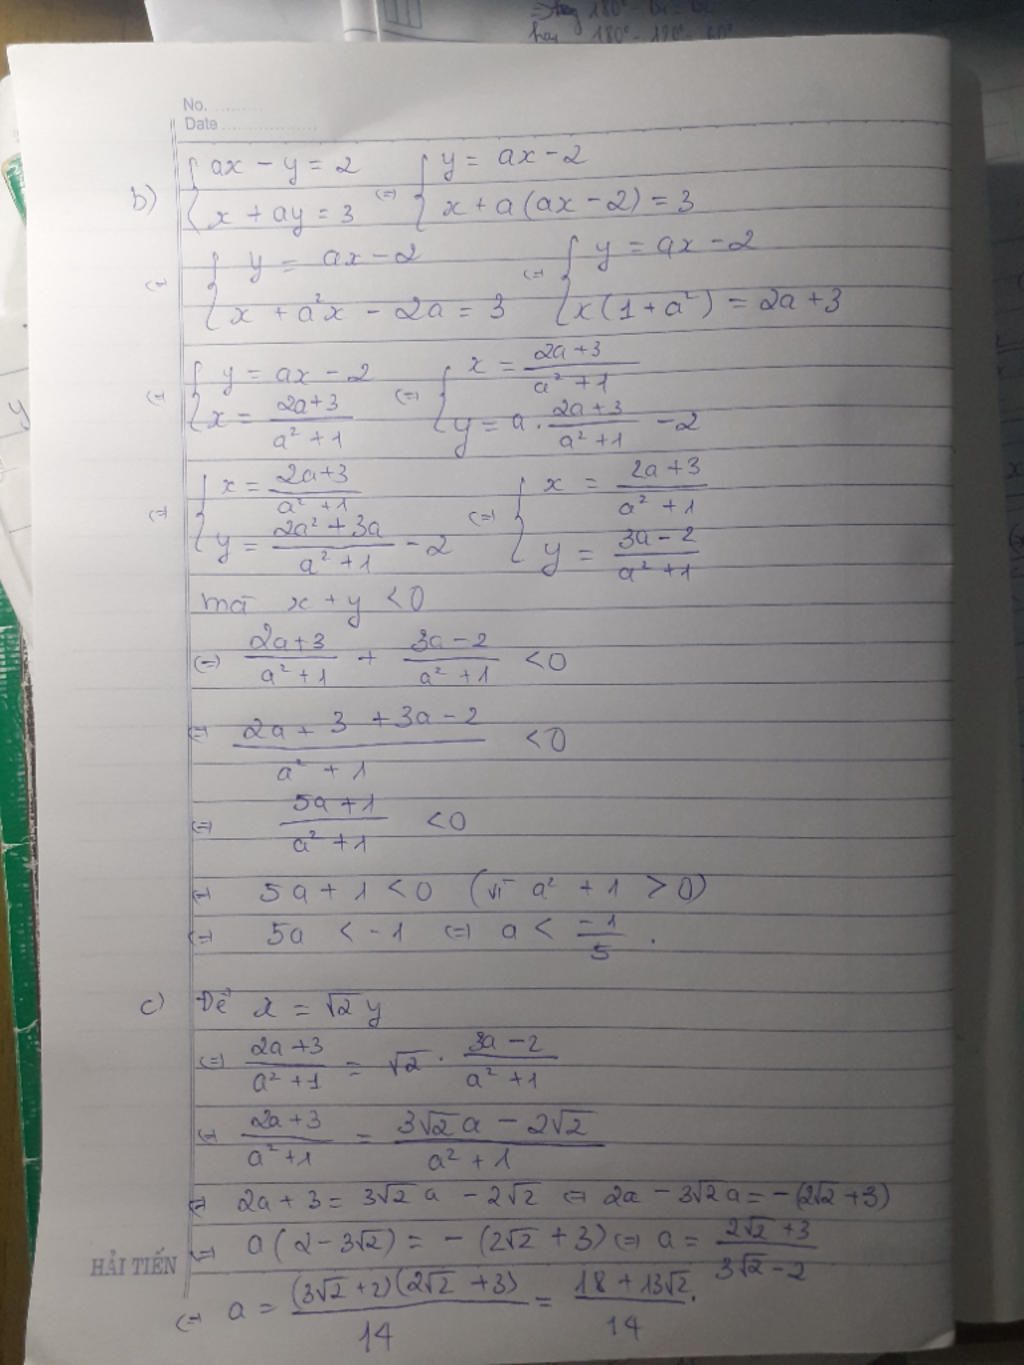 ⇒ 180° -
hay 180° - 120° = 60°
No. ............
Date ....................
b) { ax - y = 2 ⇔ { y = ax - 2
{ x + ay = 3 { x + a(ax - 2) = 3
⇔ { y = ax - 2 ⇔ { y = ax - 2
{ x + a²x - 2a = 3 { x(1 + a²) = 2a + 3
⇔ { y = ax - 2 ⇔ { x = (2a+3)/(a² + 1)
{ x = (2a+3)/(a² + 1) { y = a . (2a+3)/(a² + 1) - 2
⇔ { x = (2a+3)/(a² + 1) ⇔ { x = (2a+3)/(a² + 1)
{ y = (2a² + 3a)/(a² + 1) - 2 { y = (3a - 2)/(a² + 1)
mà x + y < 0
⇔ (2a+3)/(a² + 1) + (3a - 2)/(a² + 1) < 0
⇔ (2a + 3 + 3a - 2)/(a² + 1) < 0
⇔ (5a + 1)/(a² + 1) < 0
⇔ 5a + 1 < 0 (vì a² + 1 > 0)
⇔ 5a < -1 ⇔ a < -1/5 .
c) Để x = √2 y
⇔ (2a + 3)/(a² + 1) = √2 . (3a - 2)/(a² + 1)
⇔ (2a + 3)/(a² + 1) = (3√2 a - 2√2)/(a² + 1)
⇔ 2a + 3 = 3√2 a - 2√2 ⇔ 2a - 3√2 a = -(2√2 + 3)
⇔ a(2 - 3√2) = - (2√2 + 3) ⇔ a = (2√2 + 3)/(3√2 - 2)
HẢI TIẾN
⇔ a = (3√2 + 2)(2√2 + 3)/14 = (18 + 13√2)/14 .